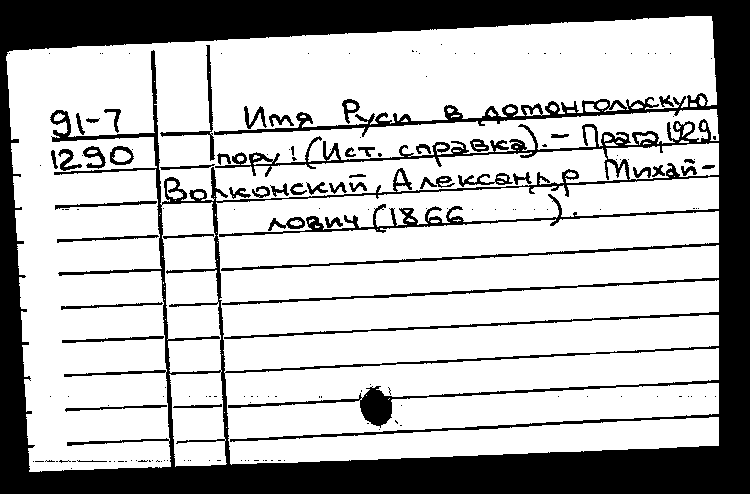 91-7 Имя Руси в домонгольскую
1290 пору! (Ист. справка). - Прага, 1929.
Волконский, Александр Михай-
лович (1866 ).